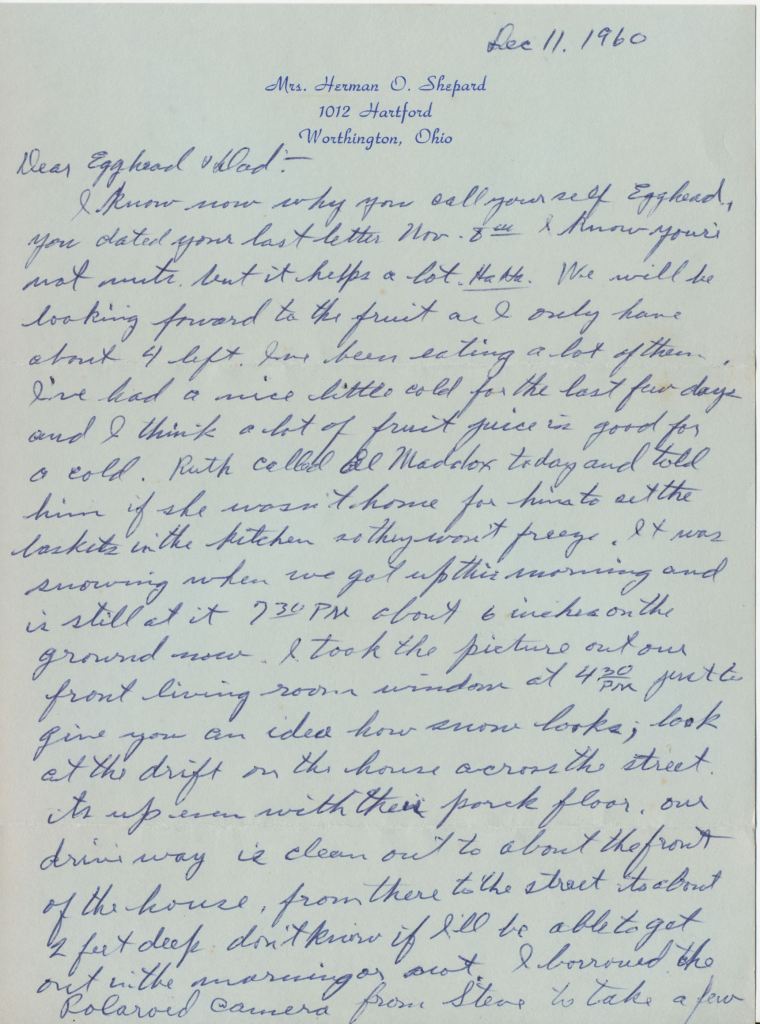 Dec 11. 1960
Mrs. Herman O. Shepard
1012 Hartford
Worthington, Ohio
Dear Egghead & Dad:-
I know now why you call yourself Egghead,
you dated your last letter Nov. 8th I know you're
not nuts. but it helps a lot. Ha Ha. We will be
looking foward to the fruit as I only have
about 4 left. I've been eating a lot of them.
I've had a nice little cold for the last few days
and I think a lot of fruit juice is good for
a cold. Ruth called Al Maddox today and told
him if she wasn't home for him to set the
baskets in the kitchen so they won't freeze. It was
snowing when we got up this morning and
is still at it 7 30 PM about 6 inches on the
ground now. I took the picture out our
front living room window at 4 30 PM just to
give you an idea how snow looks; look
at the drift on the house across the street.
its up even with their porch floor. our
drive way is clean out to about the front
of the house, from there to the street its about
2 feet deep. don't know if I'll be able to get
out in the morning or not. I borrowed the
Polaroid camera from Steve to take a few